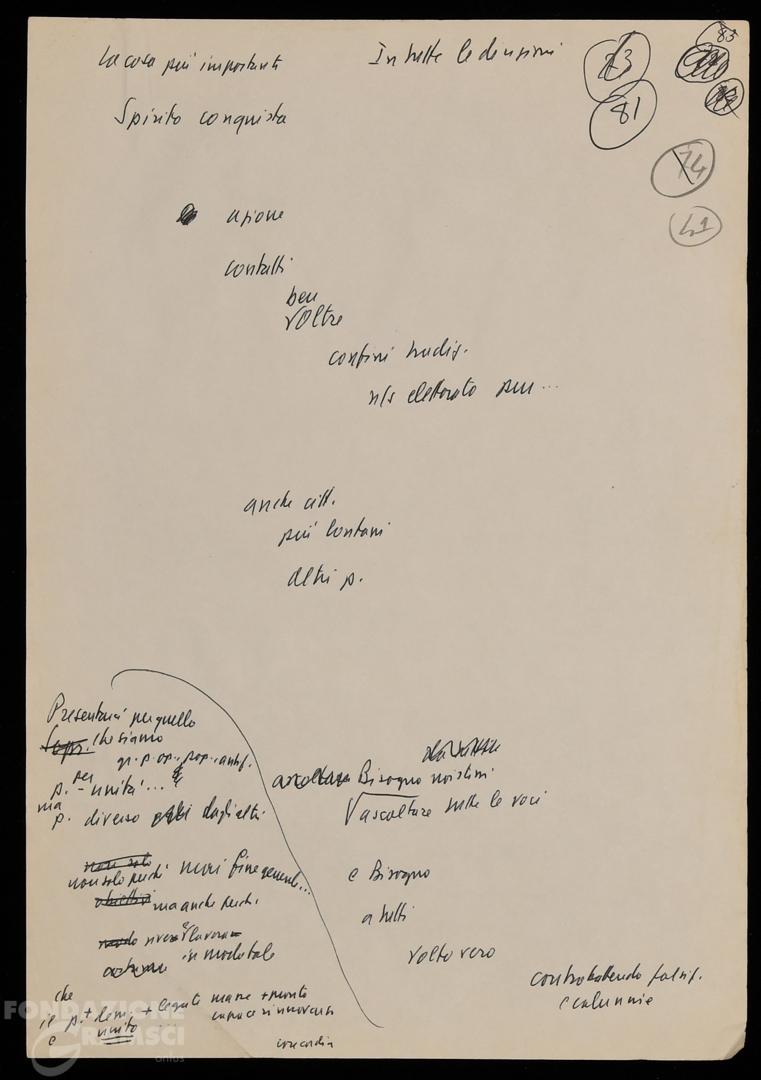 La cosa più importante
In tutte le
83
73
81
74
41
Spirito conquista
azione
contatti
ben
oltre
confini tradiz.
n/s elettorato più ...
anche citt.
più lontani
altri p.
Presentarci per quello
che siamo
gr. p. op., pop., antif.
p. per unità ...
ma
p. diverso dagli altri
Bisogno
ascoltare tutte le voci
non solo
non solo perché fine
ma anche perché
e Bisogno
a tutti
vive e lavora
in modo tale
volto vero
controbattendo falsif.
e calunnie
che
il p. + dem. + legato masse + pronto
e unito ... capace rinnovarsi
concordia
FONDAZIONE
GRAMSCI
onlus